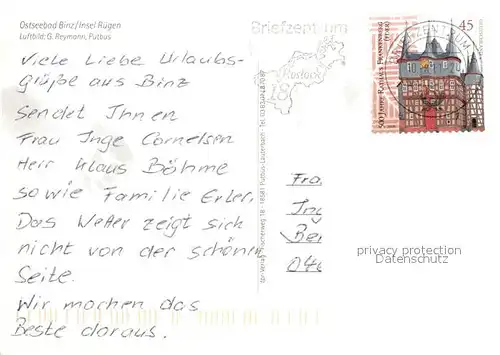 Ostseebad Binz/Insel Rügen
Luftbild: G. Reymann, Putbus
Viele Liebe Urlaubs-
grüße aus Binz
sendet Ihnen
Frau Inge Cornelsen
Herr Klaus Böhme
sowie Familie Erler.
Das Wetter zeigt sich
nicht von der schönen
Seite.
Wir machen das
Beste daraus.
Briefzentrum
Rostock
18
45
500 JAHRE RATHAUS FRANKENBERG
(EDER)
Fra
Ing
Ber
044
privacy protection
Datenschutz